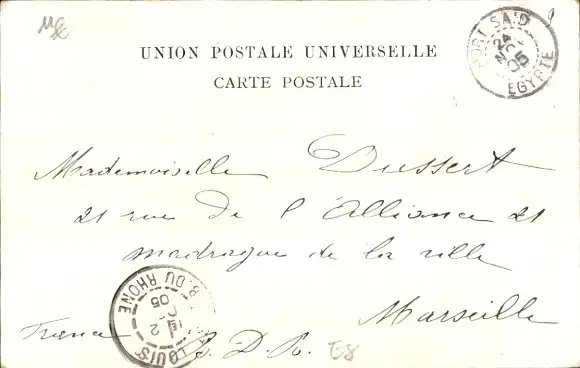 UNION POSTALE UNIVERSELLE
CARTE POSTALE
PORT SAID
24
05
EGYPTE
Mademoiselle Dussert
21 rue de l'Alliance 21
madrague de la ville
Marseille
France B. D. R.
LOUIS B. DU RHONE
2
05
E8